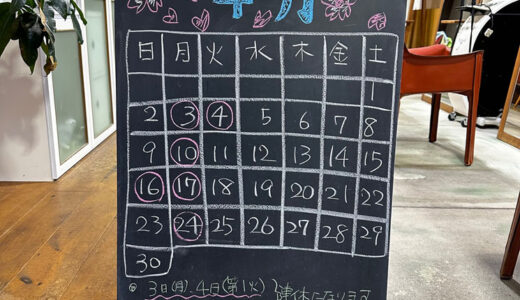 月
日 月 火 水 木 金 土
1
2 3 4 5 6 7 8
9 10 11 12 13 14 15
16 17 18 19 20 21 22
23 24 25 26 27 28 29
30
3日(月)、4日(第1火) 連休になります